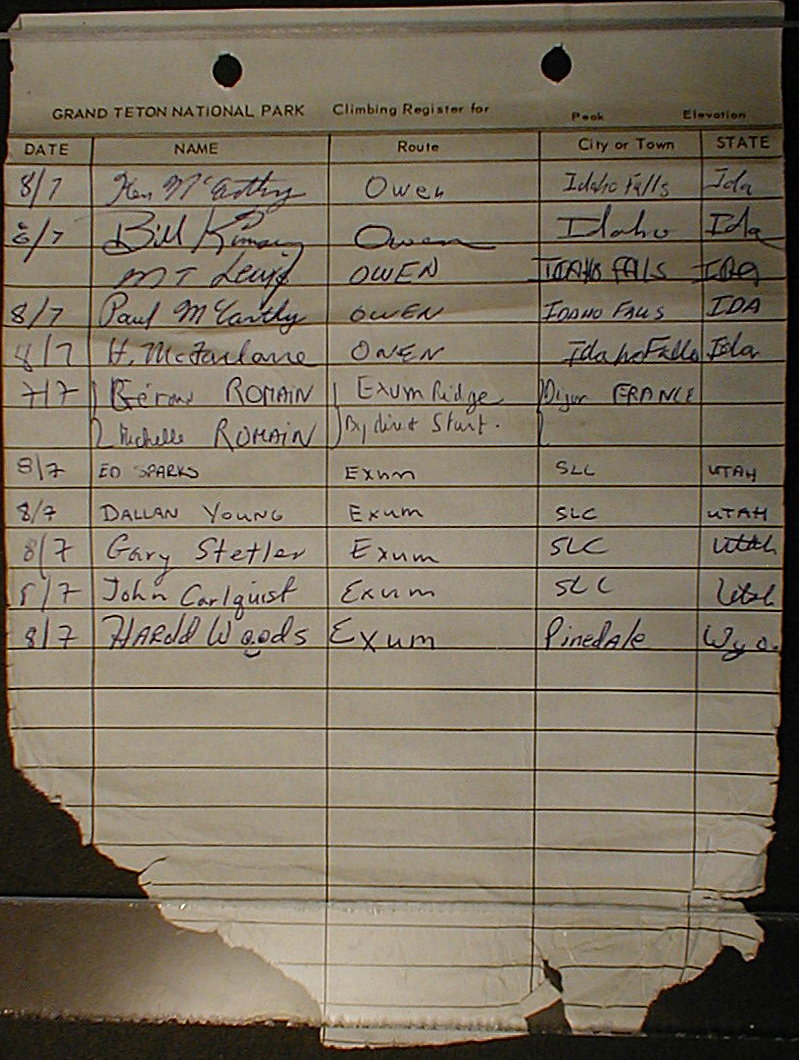 GRAND TETON NATIONAL PARK Climbing Register for Peak Elevation
DATE NAME Route City or Town STATE
8/7 Ken McCarthy Owen Idaho Falls Ida
8/7 Bill Owen Idaho Ida
M T Owen IDAHO FALLS IDA
8/7 Paul McCarthy OWEN IDAHO FALLS IDA
8/7 H. McFarlane OWEN Idaho Falls Ida
7/7 ROMAIN Exum Ridge FRANCE
Michelle ROMAIN By direct Start.
8/7 ED SPARKS Exum SLC UTAH
8/7 DALLAN YOUNG Exum SLC UTAH
8/7 Gary Stetler Exum SLC Utah
8/7 John Carlquist Exum SLC Utah
8/7 HARold Woods Exum PinedAle Wyo.